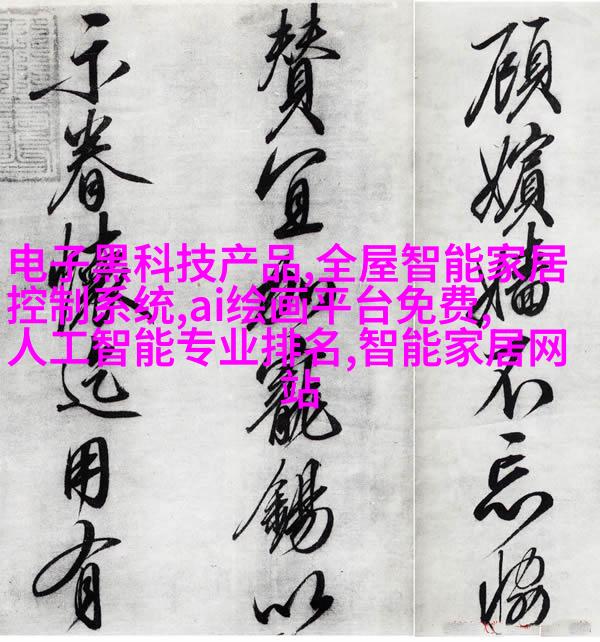 电子黑科技产品,全屋智能家居
控制系统,ai绘画平台免费,
人工智能专业排名,智能家居网
站
顾嬪嬙不忘恊
賛宜寵錫以
示眷懷迄用有